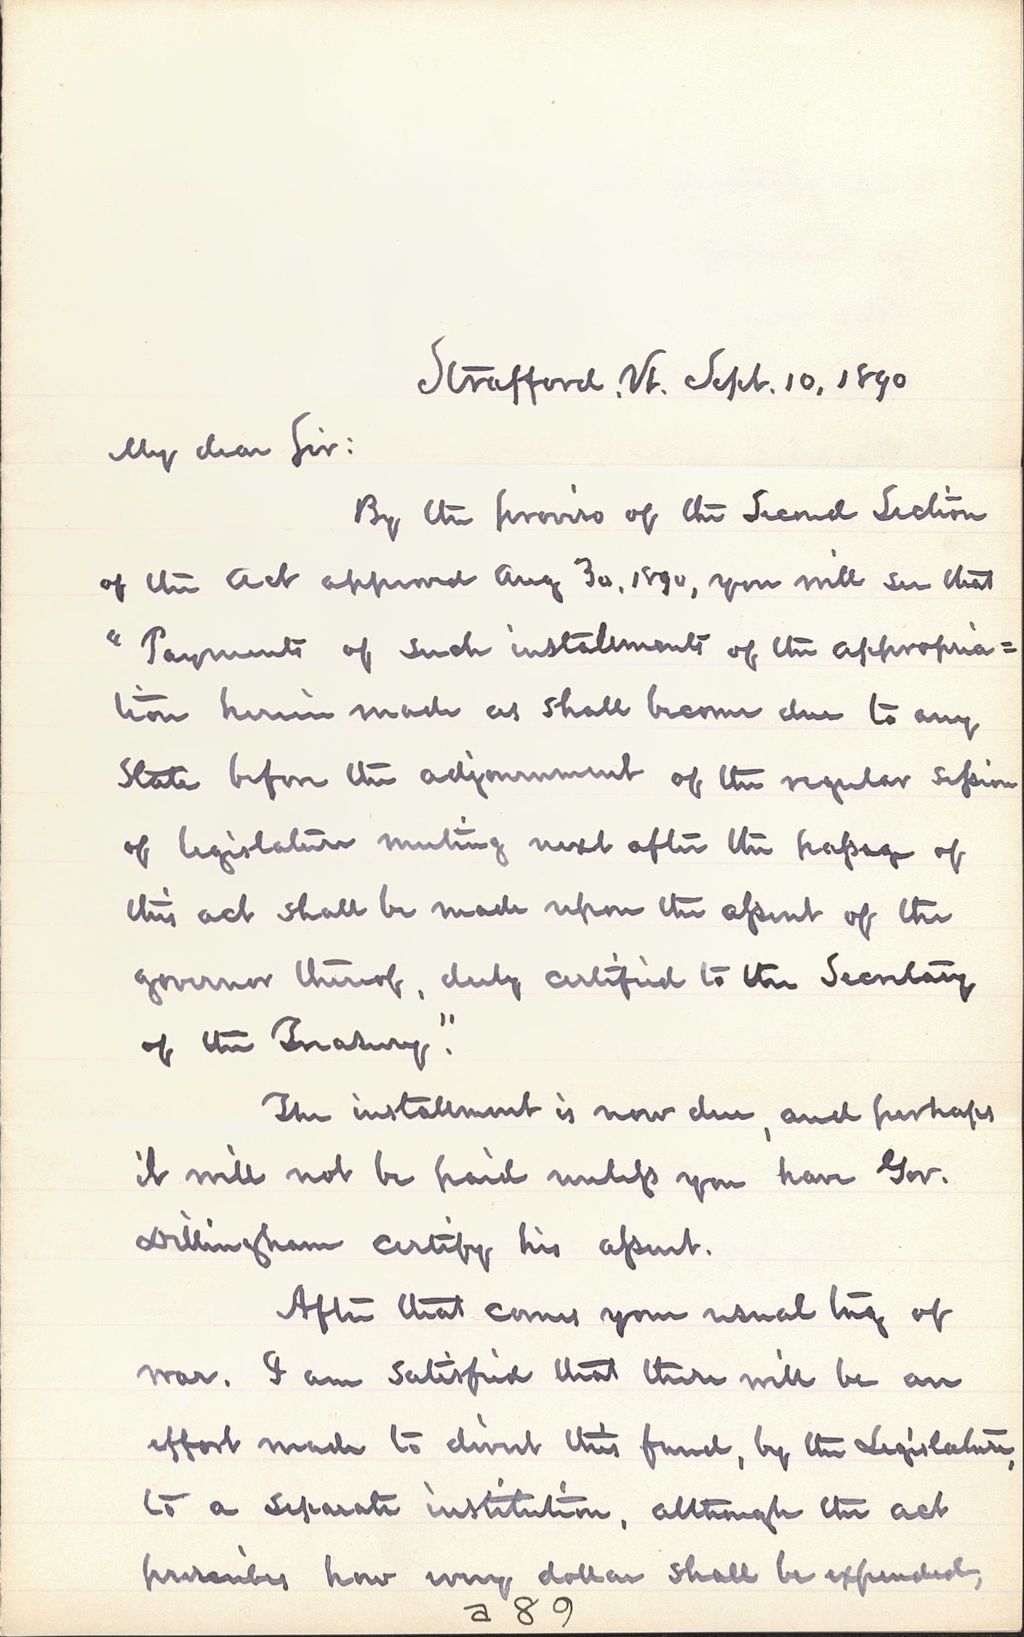 Strafford, Vt. Sept. 10, 1890
My dear Sir:
By the proviso of the Second Section
of the Act approved Aug 30, 1890, you will see that
"Payments of such installments of the appropria=
tion herein made as shall become due to any
State before the adjournment of the regular session
of legislature meeting next after the passage of
this act shall be made upon the assent of the
governor thereof, duly certified to the Secretary
of the Treasury".
The installment is now due, and perhaps
it will not be paid unless you have Gov.
Dillingham certify his assent.
After that comes your usual tug of
war. I am satisfied that there will be an
effort made to divert this fund, by the Legislature,
to a separate institution, although the act
prescribes how every dollar shall be expended,
a 89